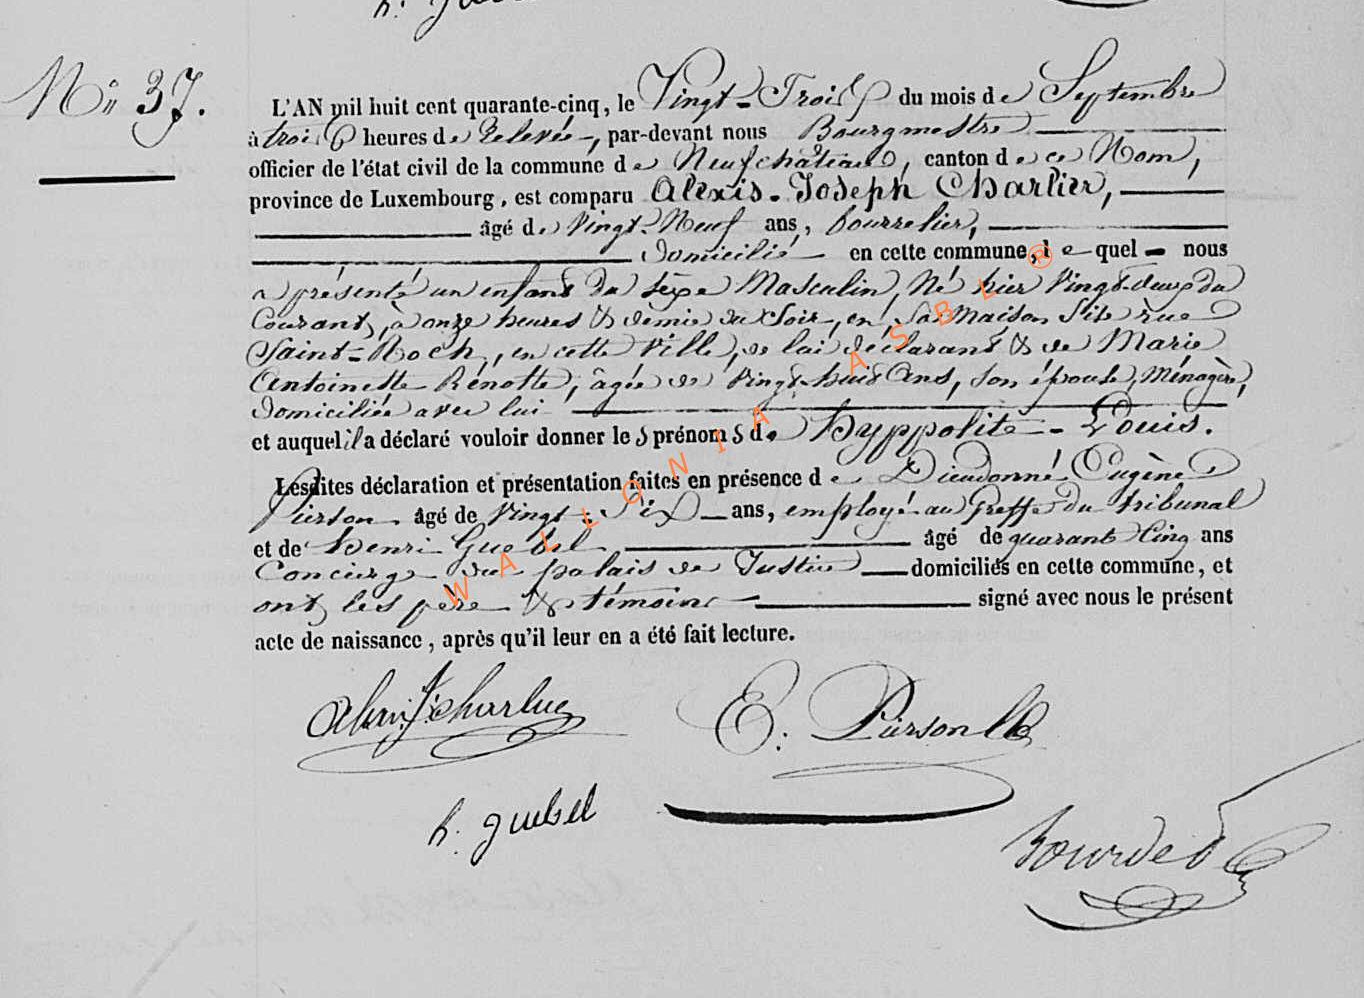 N° 37.
L'AN mil huit cent quarante-cinq, le Vingt-Trois du mois de Septembre
à trois heures de relevée, par-devant nous Bourgmestre
officier de l'état civil de la commune de Neufchâteau, canton de ce Nom,
province de Luxembourg, est comparu Alexis-Joseph Charlier,
âgé de Vingt-Neuf ans, bourrelier,
domicilié en cette commune, lequel nous
a présenté un enfant du sexe Masculin, Né hier Vingt-deux du
Courant, à onze heures & demie du Soir, en sa Maison Sise rue
Saint-Roch, en cette Ville, de lui déclarant & de Marie
Antoinette Rénotte, âgée de Vingt-huit Ans, son épouse, Ménagère,
domiciliée avec lui
et auquel il a déclaré vouloir donner les prénoms de Hyppolite-Louis.
Lesdites déclaration et présentation faites en présence de Dieudonné Eugène
Pierson, âgé de Vingt-Six ans, employé au Greffe du tribunal
et de Henri Guebel âgé de quarante Cinq ans
Concierge du palais de Justice domiciliés en cette commune, et
ont les père & témoins signé avec nous le présent
acte de naissance, après qu'il leur en a été fait lecture.
Alexis J. Charlier
E. Pierson
h. guebel
WALLONIA ASBL ®